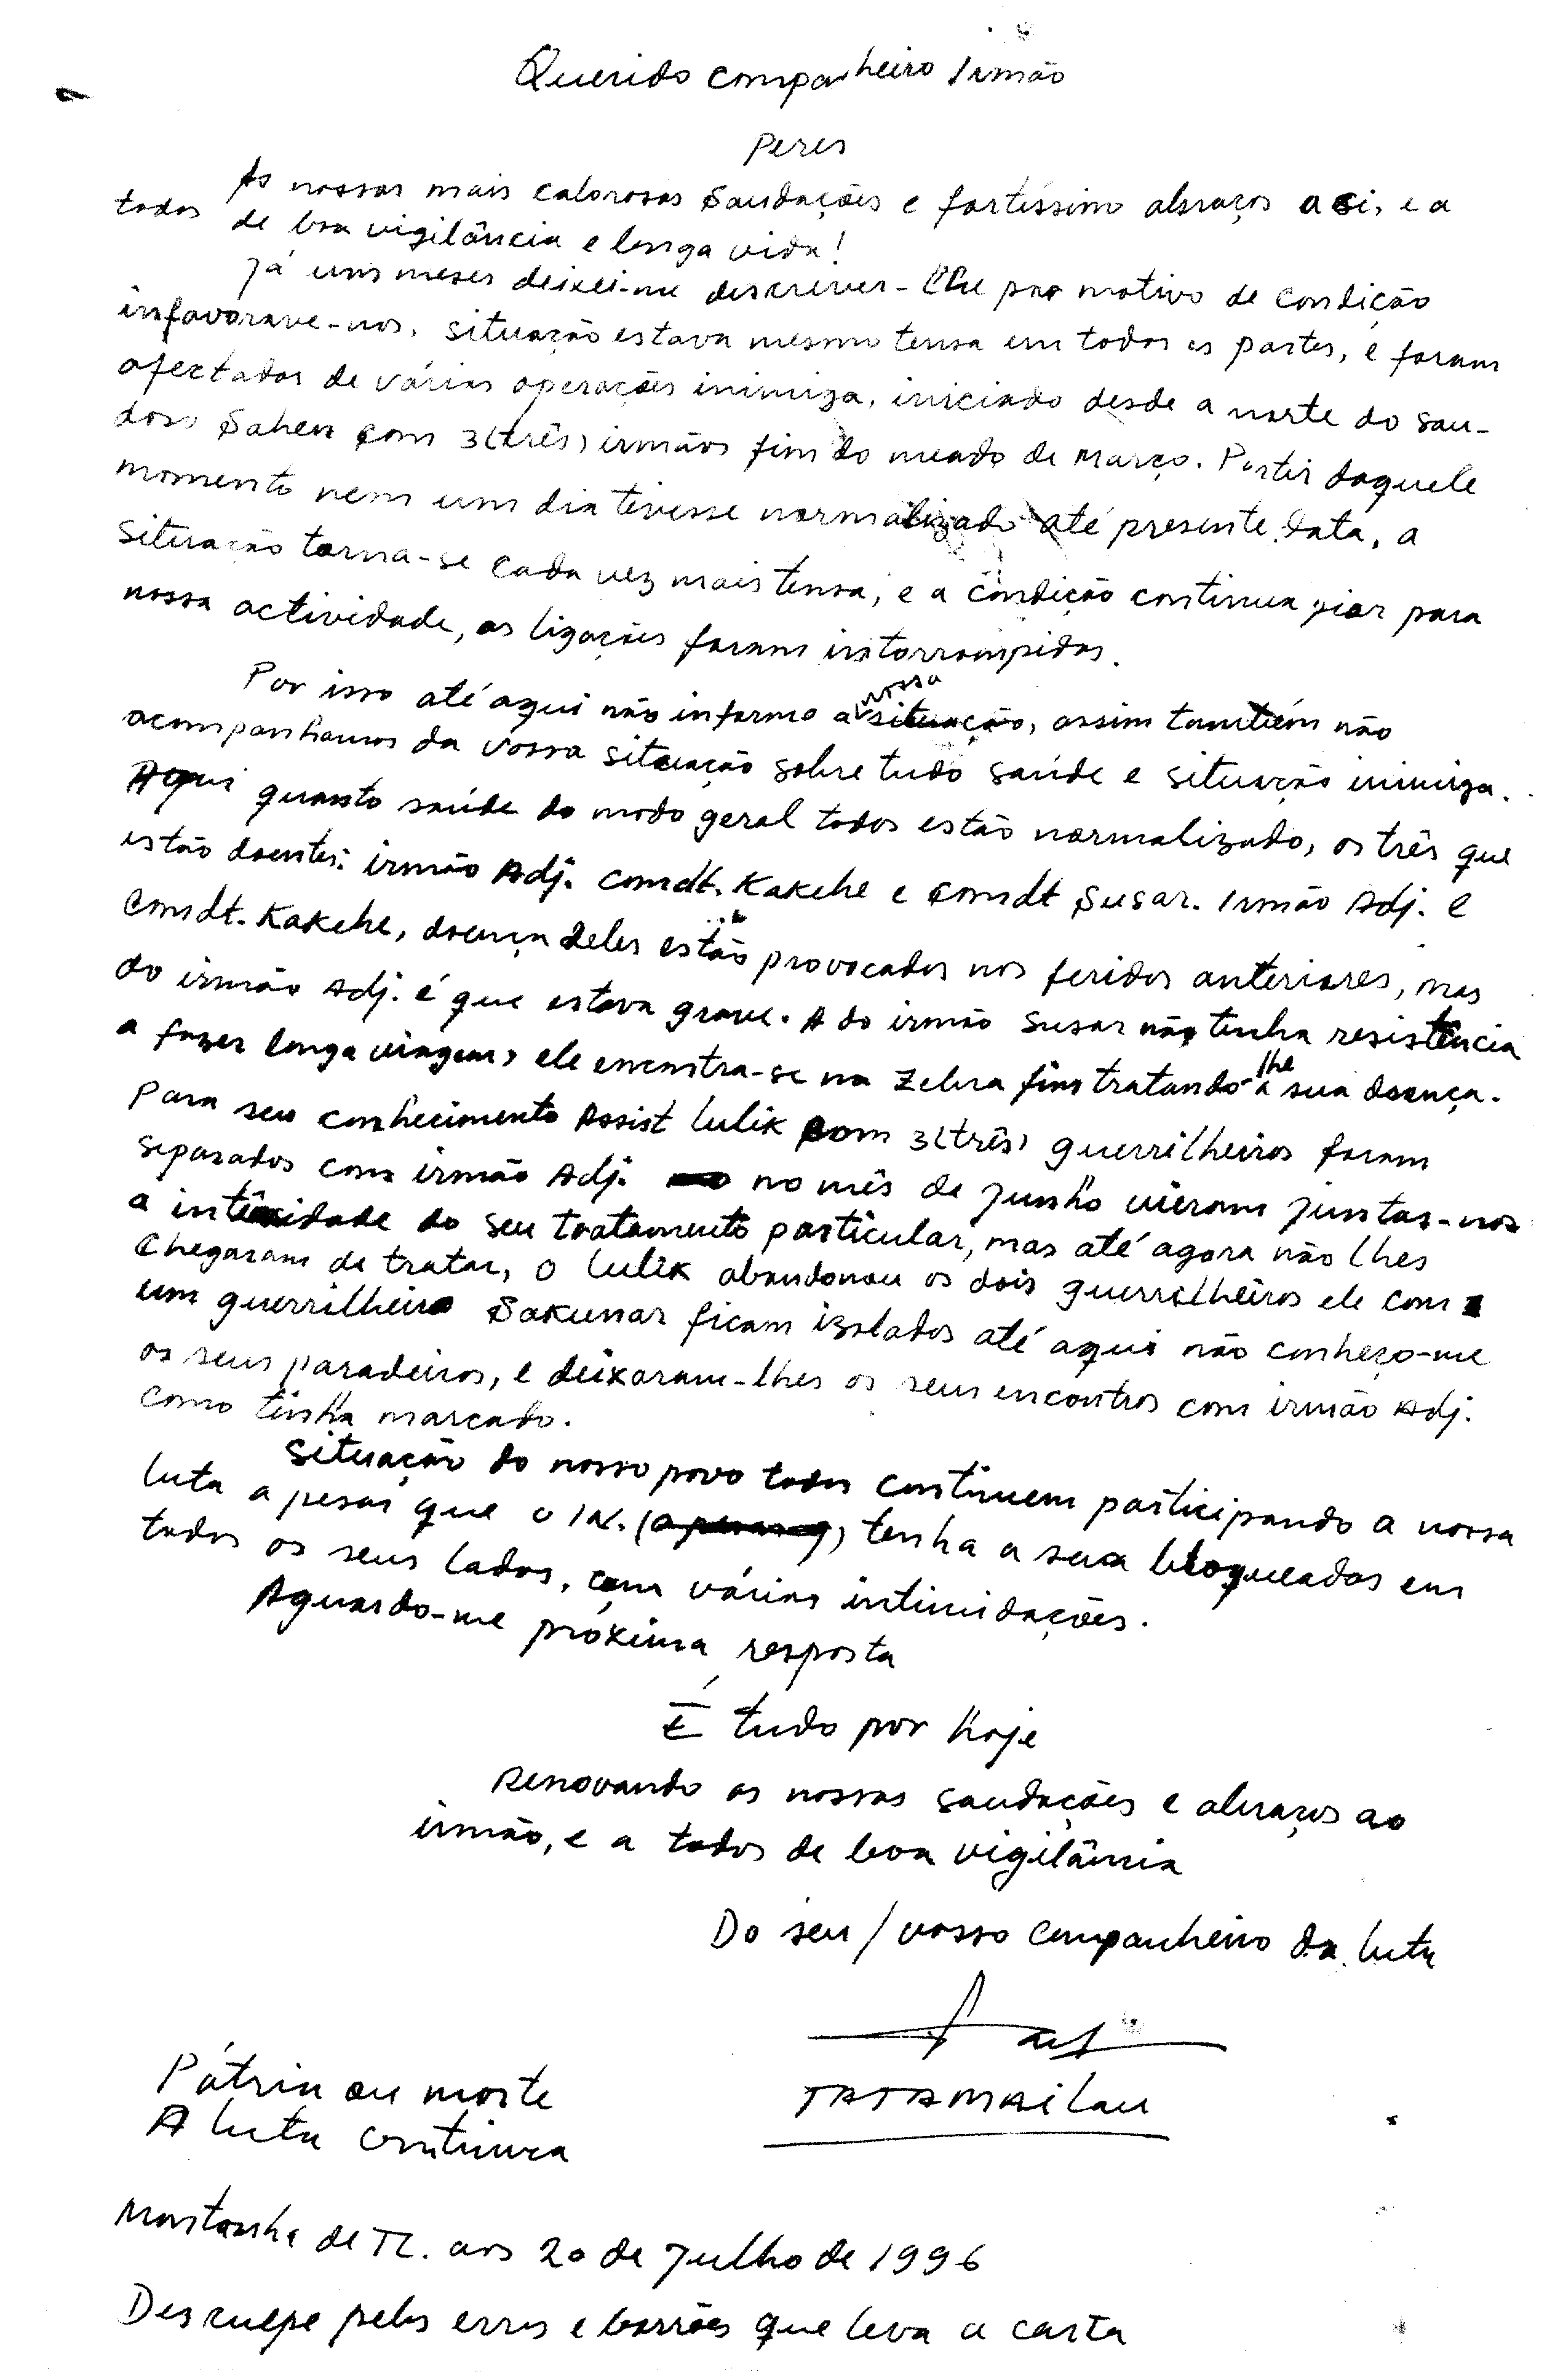 Querido companheiro Irmão
Peres
As nossas mais calorosas Saudações e fortíssimo abraços a si, e a
todos de boa vigilância e longa vida!
Já uns meses deixei-me descrever-lhe por motivo de condição
infavorave-nos, situação estava mesmo tensa em todos as partes, e foram
afectados de várias operações inimiga, iniciado desde a morte do sau-
doso Sahen com 3(três) irmãos fim do meado de Março. Partir daquele
momento nem um dia tivesse normalizado até presente data, a
situação torna-se cada vez mais tensa, e a condição continua pior para
nossa actividade, as ligações foram intorrompidas.
Por isso até aqui não informo a nossa situação, assim também não
acompanhamos da vossa situação sobre tudo saúde e situação inimiga.
Aqui quanto saúde do modo geral todos estão normalizado, os três que
estão doentes: irmão Adj. comdt. Kakehe e Comdt Susar. Irmão Adj. e
Comdt. Kakehe, doença deles estão provocados nos feridos anteriores, mas
do irmão Adj. é que estava grave. A do irmão Susar não tenha resistência
a fazer longa viagem, ele encontra-se na Zebra fim tratando-lhe a sua doença.
Para seu conhecimento Assist Lulik com 3(três) guerrilheiros foram
separados com irmão Adj. no mês de Junho vieram juntar-nos
a intensidade do seu tratamento particular, mas até agora não lhes
chegaram de tratar, o Lulik abandonou os dois guerrilheiros ele com
um guerrilheiro Sakunar ficam izolados até aqui não conheço-me
os seus paradeiros, e deixaram-lhes os seus encontros com irmão Adj.
como tinha marcado.
Situação do nosso povo todos continuem participando a nossa
luta a pesar que o IN. tenha a sua bloqueados em
todos os seus lados, com várias intimidações.
Aguardo-me próxima resposta
É tudo por hoje
Renovando as nossas saudações e abraços ao
irmão, e a todos de boa vigilância
Do seu/vosso companheiro da luta
TATAMAILau
Pátria ou morte
A luta continua
Montanha de TL. aos 20 de Julho de 1996
Desculpe pelos erros e borrões que leva a carta